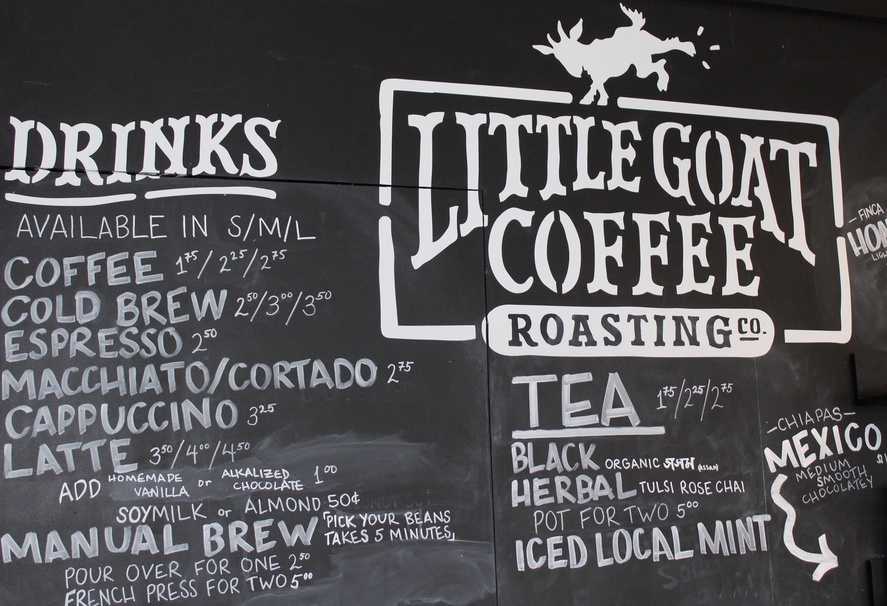 DRINKS
AVAILABLE IN S/M/L
COFFEE 1⁷⁵/2²⁵/2⁷⁵
COLD BREW 2⁵⁰/3⁰⁰/3⁵⁰
ESPRESSO 2⁵⁰
MACCHIATO/CORTADO 2⁷⁵
CAPPUCCINO 3²⁵
LATTE 3⁵⁰/4⁰⁰/4⁵⁰
ADD HOMEMADE VANILLA or ALKALIZED CHOCOLATE 1⁰⁰
SOYMILK or ALMOND 50¢
MANUAL BREW PICK YOUR BEANS
TAKES 5 MINUTES,
POUR OVER FOR ONE 2⁵⁰
FRENCH PRESS FOR TWO 5⁰⁰
LITTLE GOAT
COFFEE
ROASTING CO.
TEA 1⁷⁵/2²⁵/2⁷⁵
BLACK ORGANIC ASSAM
HERBAL TULSI ROSE CHAI
POT FOR TWO 5⁰⁰
ICED LOCAL MINT
-FINCA
-CHIAPAS-
MEXICO
MEDIUM
SMOOTH
CHOCOLATEY